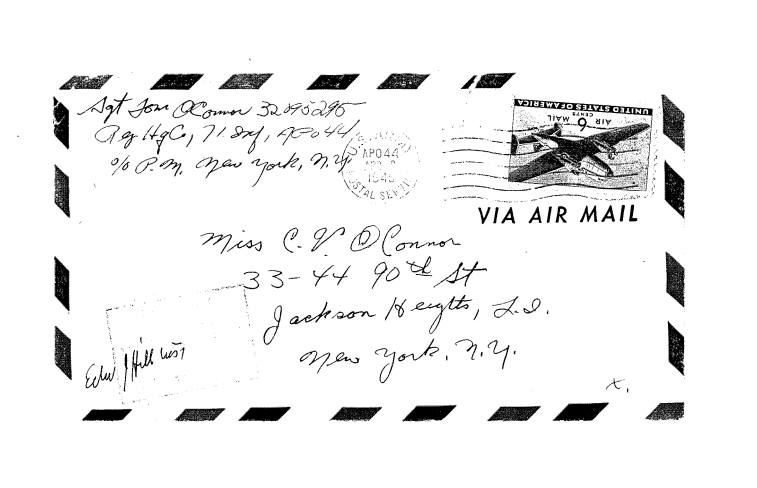 Sgt Tom O'Connor 32095295
Reg Hq Co, 71 Inf, APO 44,
c/o P.M. New York, N.Y.
U.S. ARMY
APO 44
1945
POSTAL SERVICE
UNITED STATES OF AMERICA
AIR MAIL
6
CENTS
VIA AIR MAIL
Miss C. V. O'Connor
33-44 90th St
Jackson Heights, L.I.
New York, N.Y.
x.